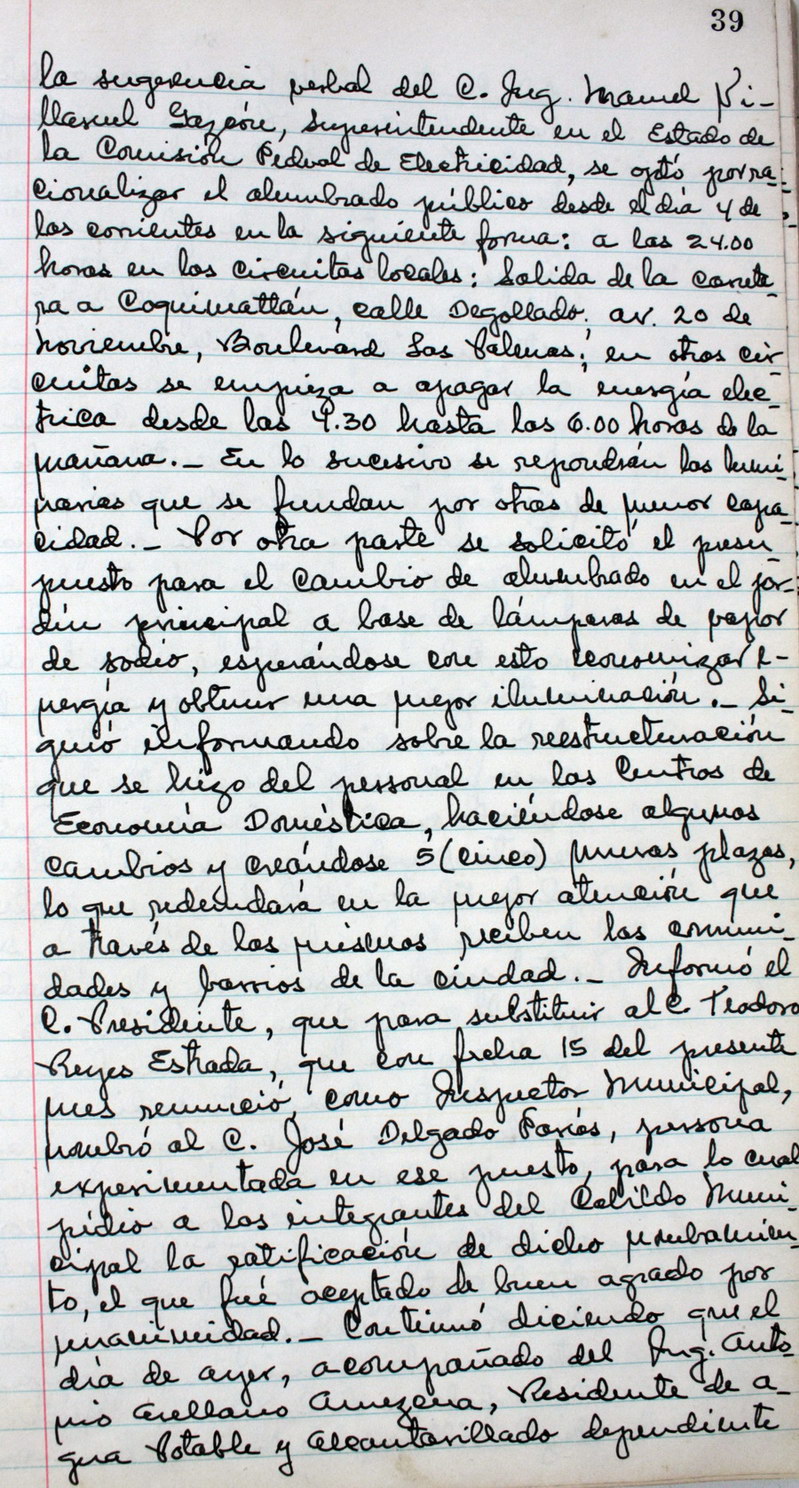 39
la sugerencia verbal del C. Ing. Manuel Vi-
llaruel Gazcón, Superintendente en el Estado de
la Comisión Federal de Electricidad, se optó por ra-
cionalizar el alumbrado público desde el día 4 de
los corrientes en la siguiente forma: a las 24.00
horas en los circuitos locales: Salida de la carrete-
ra a Coquimatlán, calle Degollado, av. 20 de
Noviembre, Boulevard Las Palmas; en otros cir-
cuitos se empieza a apagar la energía eléc-
trica desde las 4.30 hasta las 6.00 horas de la
mañana._ En lo sucesivo se repondrán las lumi-
narias que se fundan por otras de menor capa-
cidad._ Por otra parte se solicitó el presu-
puesto para el cambio de alumbrado en el jar-
dín principal a base de lámparas de vapor
de sodio, esperándose con esto economizar e-
nergía y obtener una mejor iluminación._ Si-
guió informando sobre la reestructuración
que se hizo del personal en los Centros de
Economía Doméstica, haciéndose algunos
cambios y creándose 5 (cinco) nuevas plazas,
lo que redundará en la mejor atención que
a través de los mismos reciben las comuni-
dades y barrios de la ciudad._ Informó el
C. Presidente, que para substituir al C. Teodoro
Reyes Estrada, que con fecha 15 del presente
mes renunció como Inspector Municipal,
nombró al C. José Delgado Farías, persona
experimentada en ese puesto, para lo cual
pidió a los integrantes del Cabildo Muni-
cipal la ratificación de dicho nombramien-
to, el que fué aceptado de buen agrado por
unanimidad._ Continuó diciendo que el
día de ayer, acompañado del Ing. Anto-
nio Arellano Amezcua, Residente de a-
gua Potable y Alcantarillado dependiente